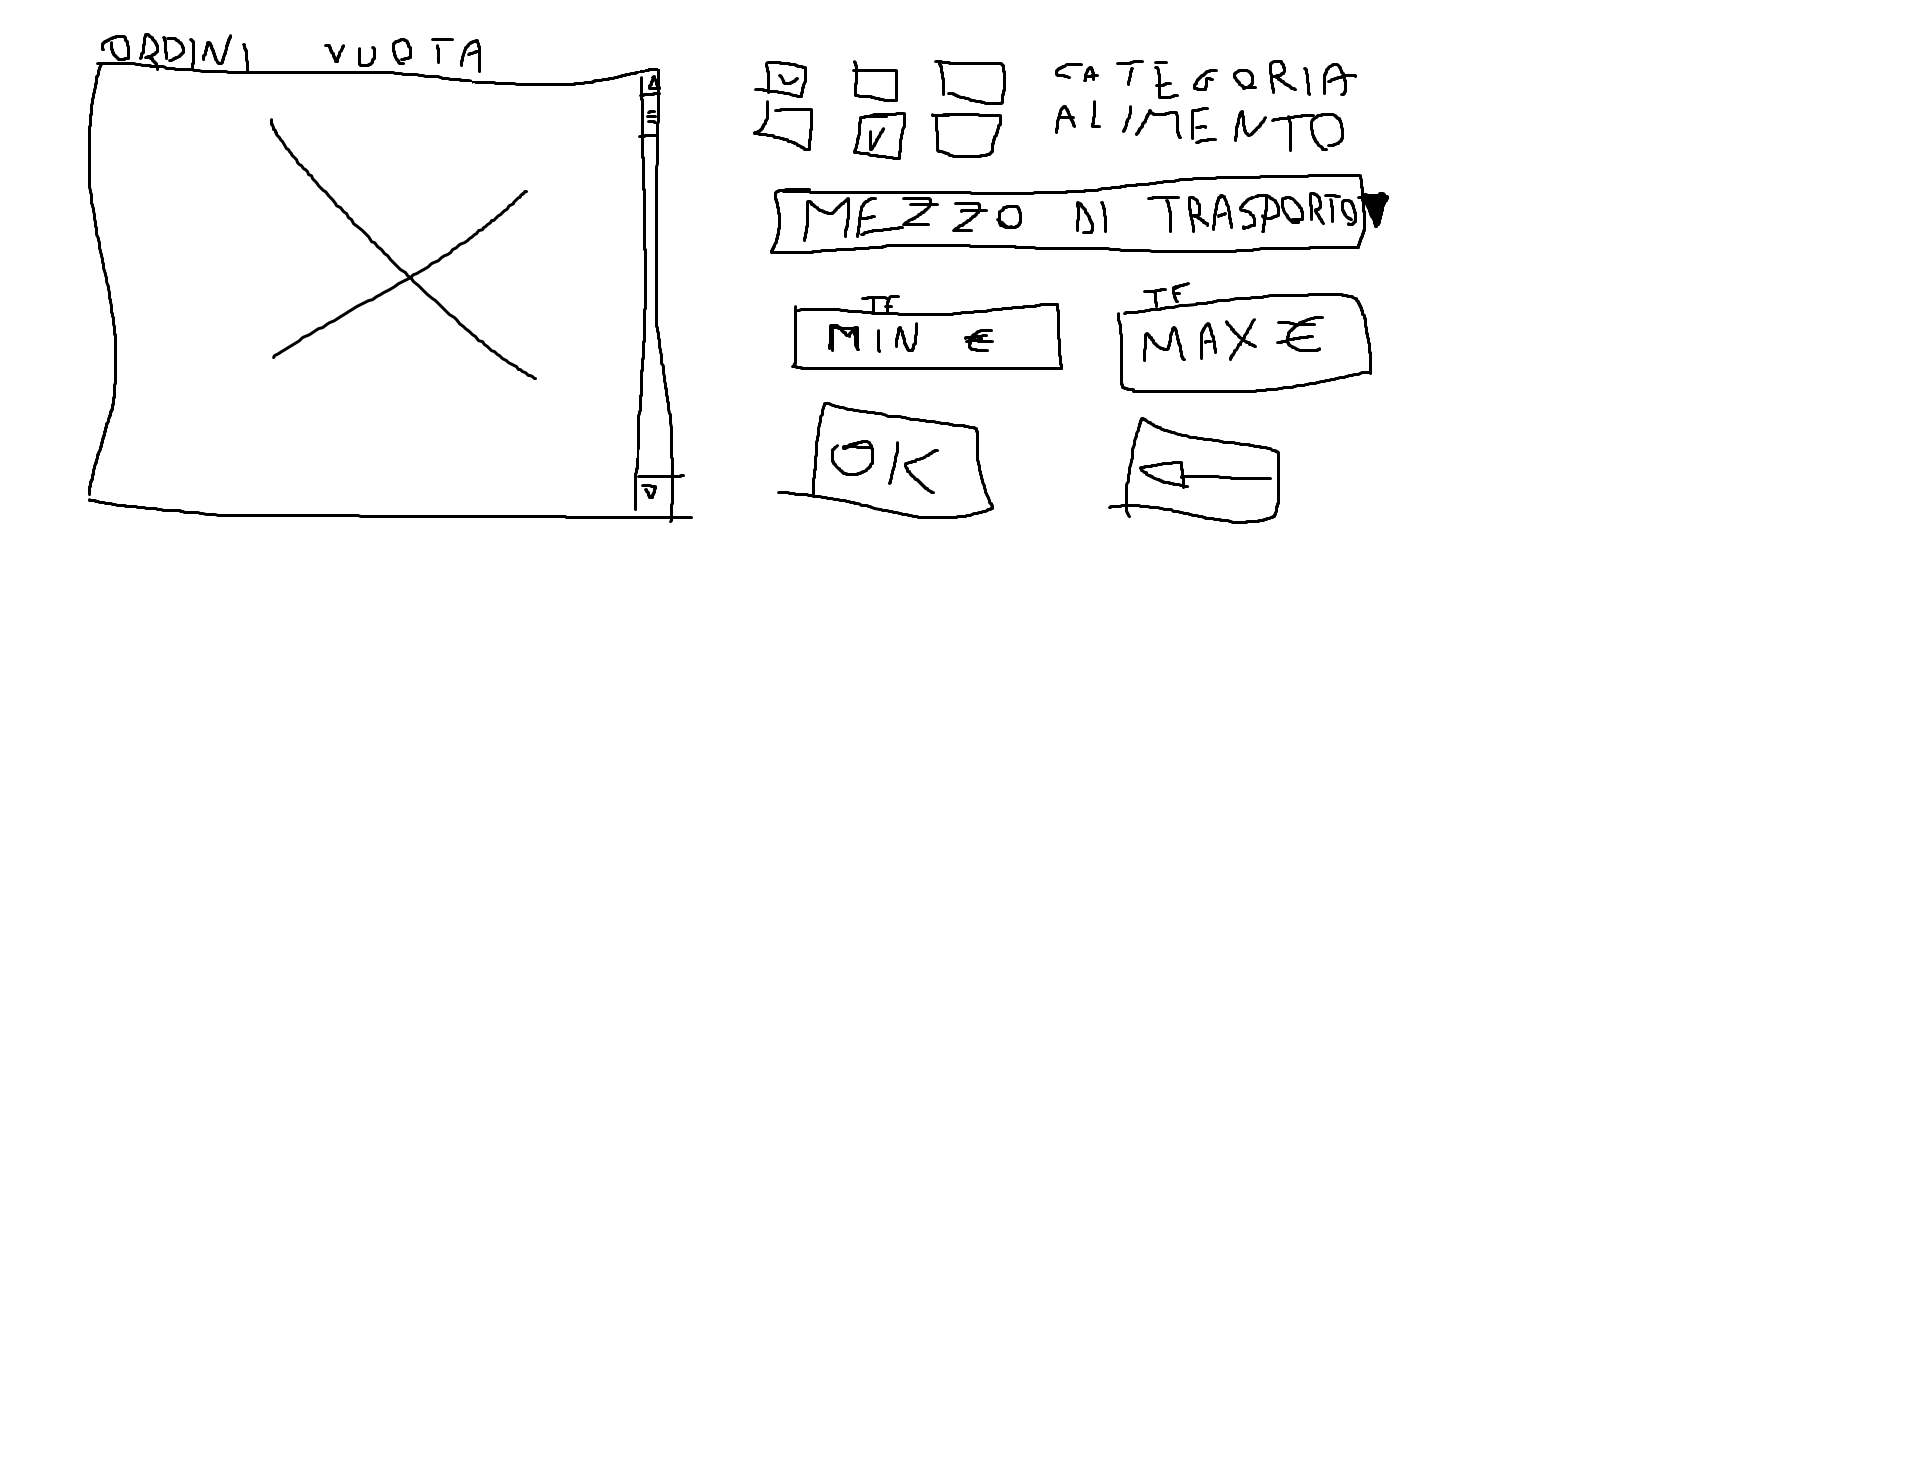 ORDINI VUOTA
CATEGORIA
ALIMENTO
MEZZO DI TRASPORTO
TF
MIN €
TF
MAX €
OK